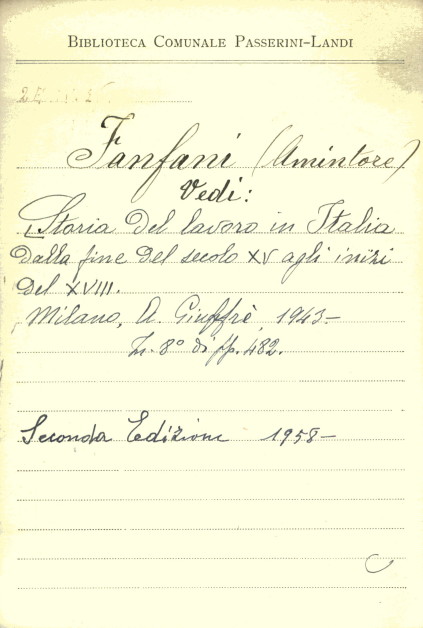 BIBLIOTECA COMUNALE PASSERINI-LANDI
Fanfani (Amintore)
Vedi:
Storia del lavoro in Italia
dalla fine del secolo XV agli inizi
del XVIII.
Milano, A. Giuffrè, 1943-
In-8° di pp. 482.
Seconda Edizione 1958-